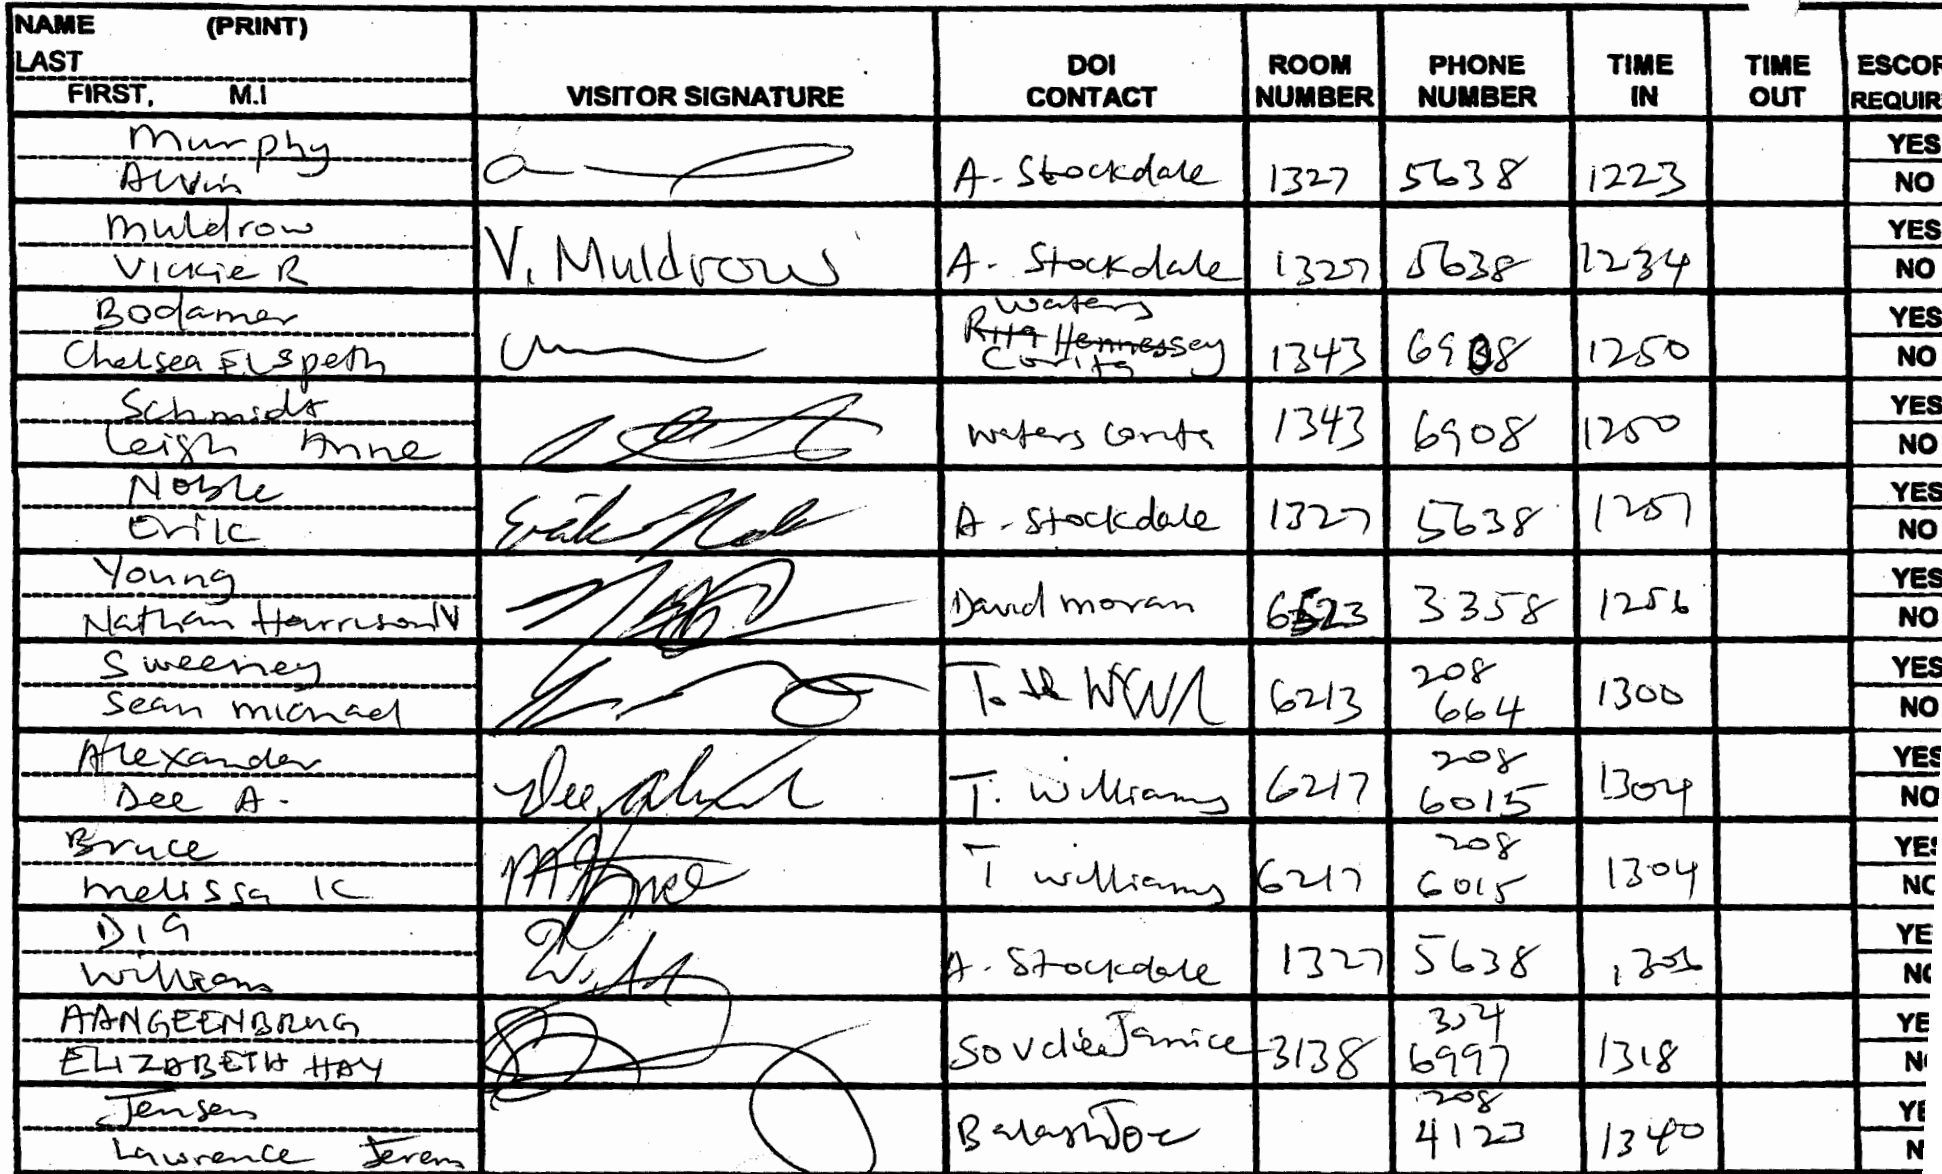 NAME (PRINT)
LAST
FIRST, M.I
VISITOR SIGNATURE
DOI CONTACT
ROOM NUMBER
PHONE NUMBER
TIME IN
TIME OUT
ESCOR
REQUIR
Murphy
Alvin
A. Stockdale 1327 5638 1223
YES
NO
Muldrow
Vickie R
V. Muldrow
A. Stockdale 1327 5638 1234
YES
NO
Bodamer
Chelsea Elspeth
Waters
Rita Hennessey
Corita
1343 6908 1250
YES
NO
Schmidt
Leigh Anne
Waters Corita 1343 6908 1250
YES
NO
Noble
Erik
Erik
A. Stockdale 1327 5638 1257
YES
NO
Young
Nathan Harrison V
David Moran 6523 3358 1256
YES
NO
Sweeney
Sean Michael
6213
208
664
1300
YES
NO
Alexander
Dee A.
Dee
T. Williams 6217
208
6015
1304
YES
NO
Bruce
Melissa K
T Williams 6217
208
6015
1304
YES
NO
William
A. Stockdale 1327 5638
YE
NO
AANGEENBRUG
ELIZABETH HAY
Janice 3138
6997
1318
YE
N
Jensen
Lawrence Jerem
Balash Joe
208
4123
1340
YE
N